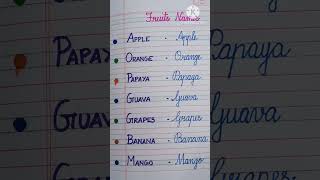 Fruits Names
Apple - Apple
Orange - Orange
Papaya - Papaya
Guava - Guava
Grapes - Grapes
Banana - Banana
Mango - Mango